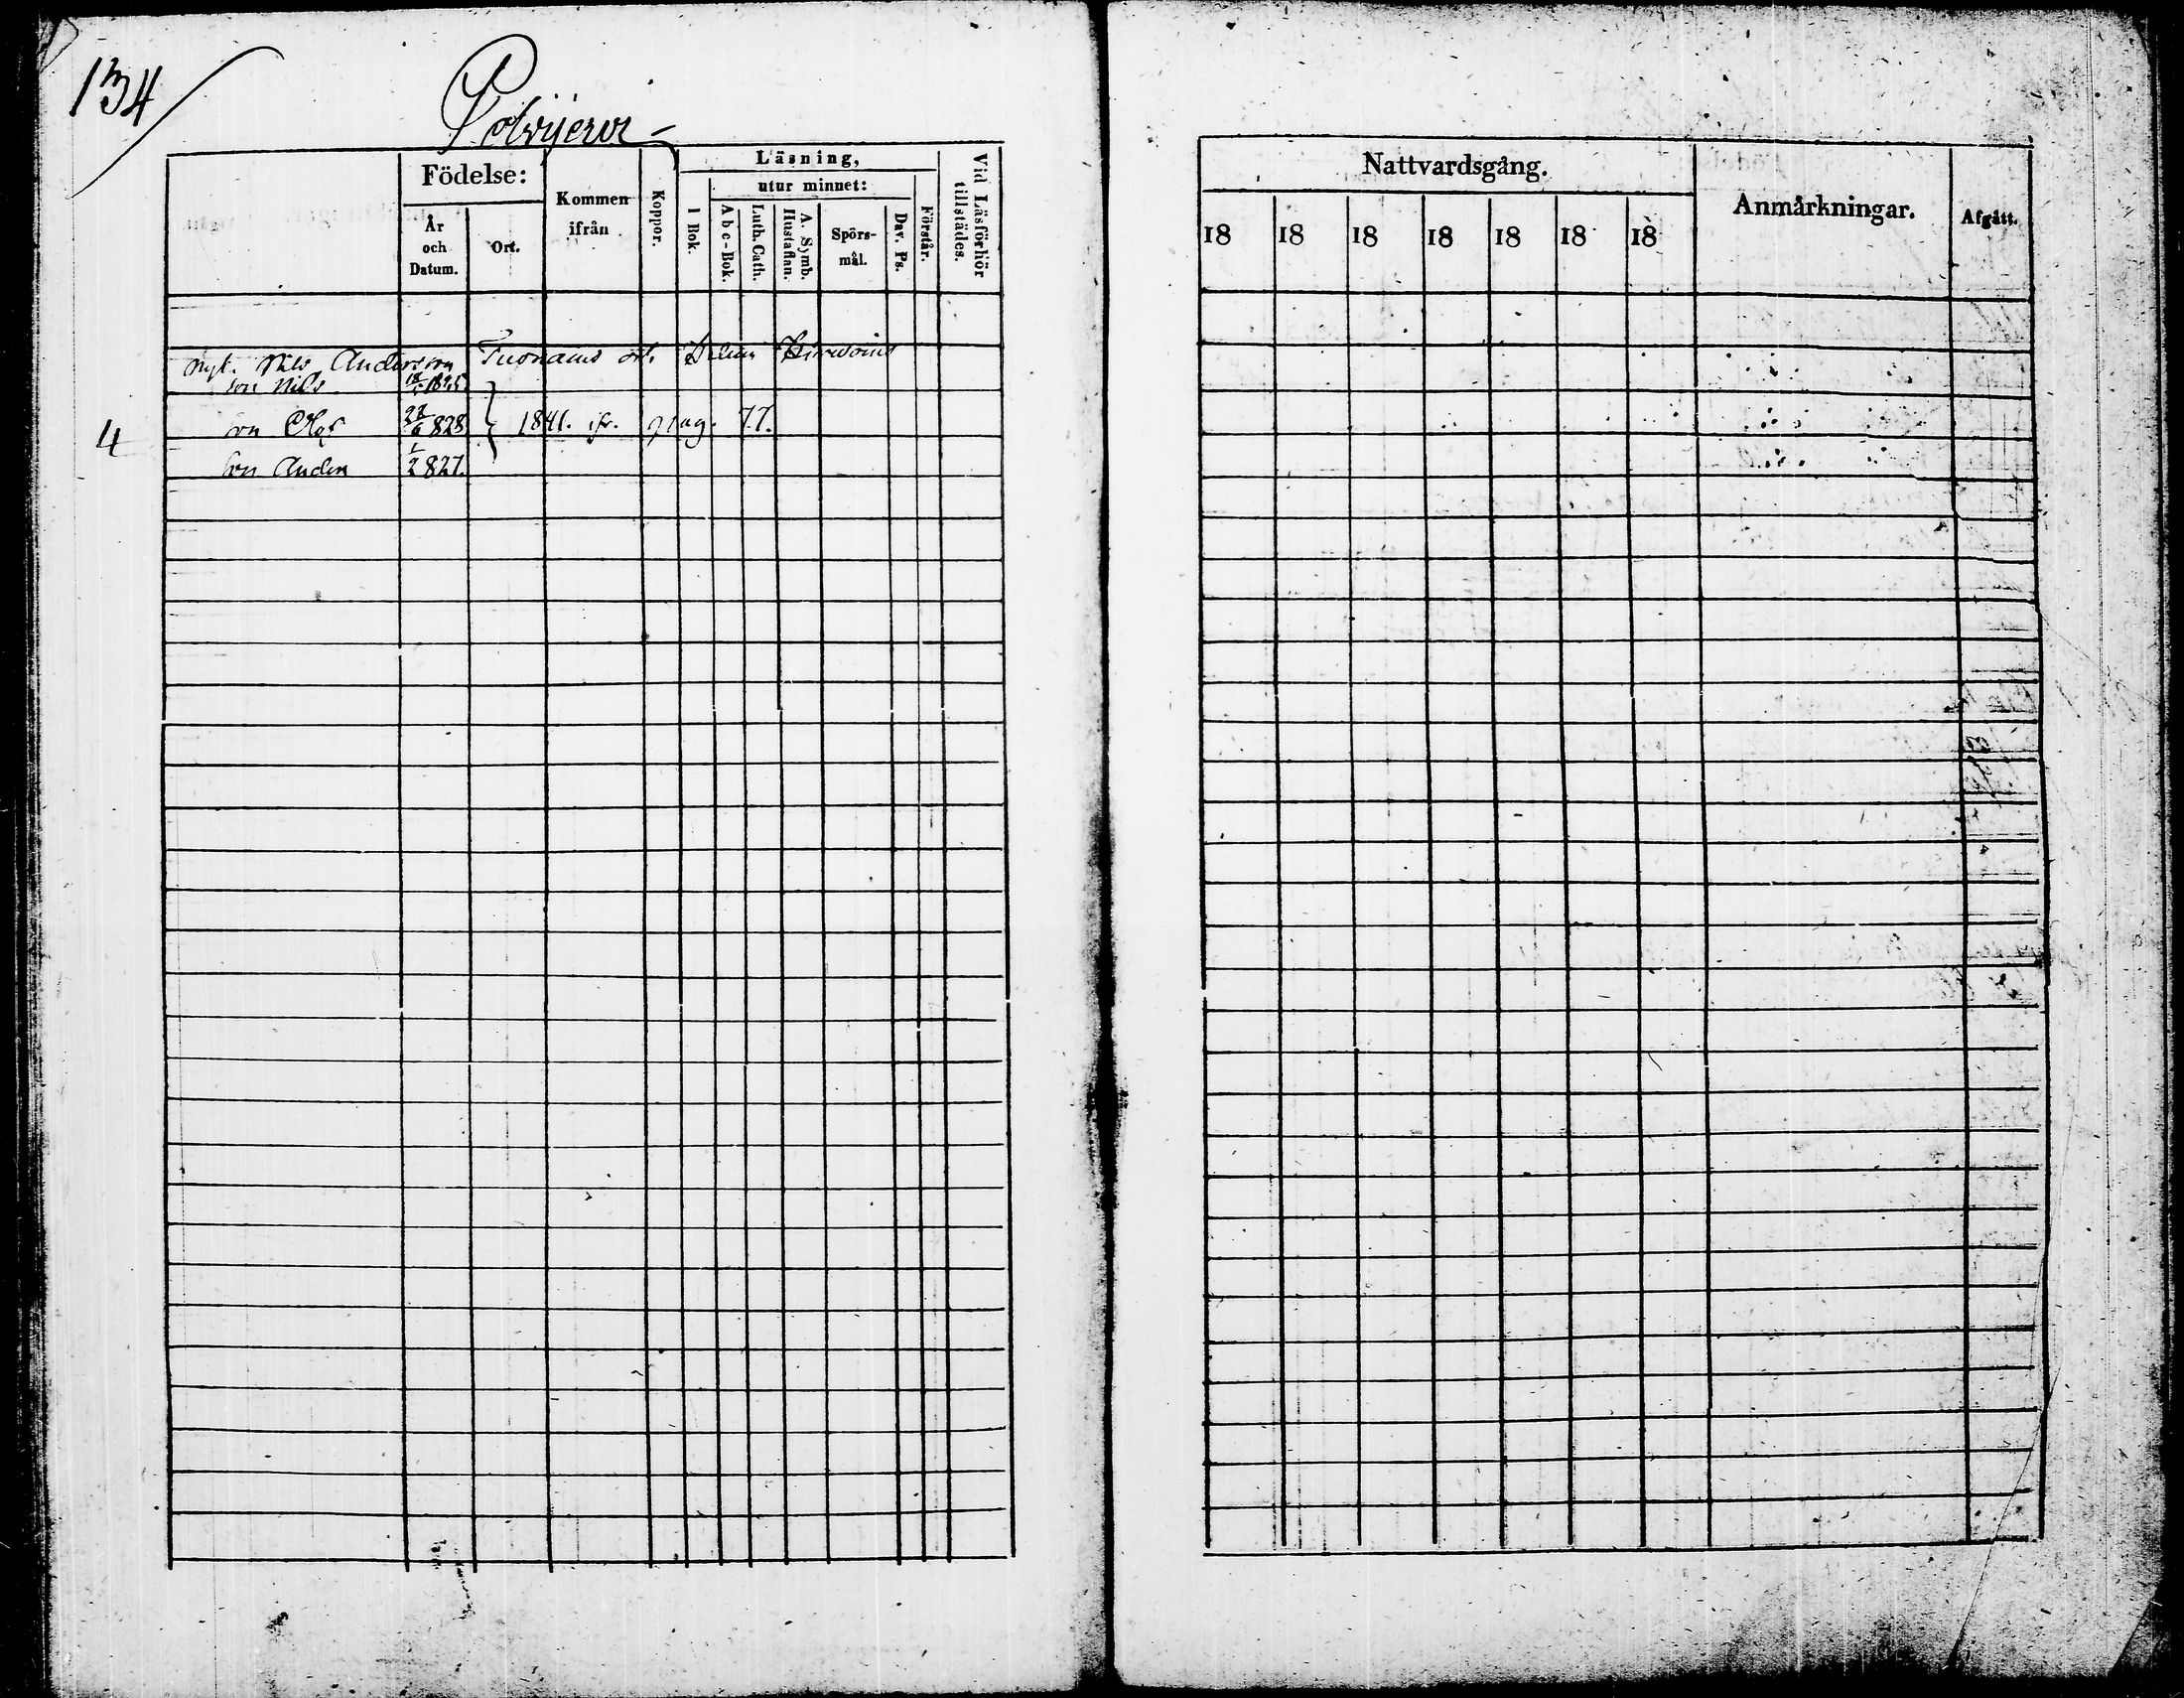 134
Polvijervi
Födelse:
År och Datum.
Ort.
Kommen ifrån
Koppor.
Läsning,
utur minnet:
I Bok.
Abc-Bok.
Luth. Cath.
A. Symb. Hustaflan.
Spörs-mål.
Dav. Ps.
Förstår.
Vid Läsförhör tillstädes.
Nils Andersson
son Nils
4 son Olof 828 1841. ifr. pag. 77.
son Anders 1/2 827.
Nattvardsgång.
18 18 18 18 18 18 18
Anmärkningar.
Afgått.